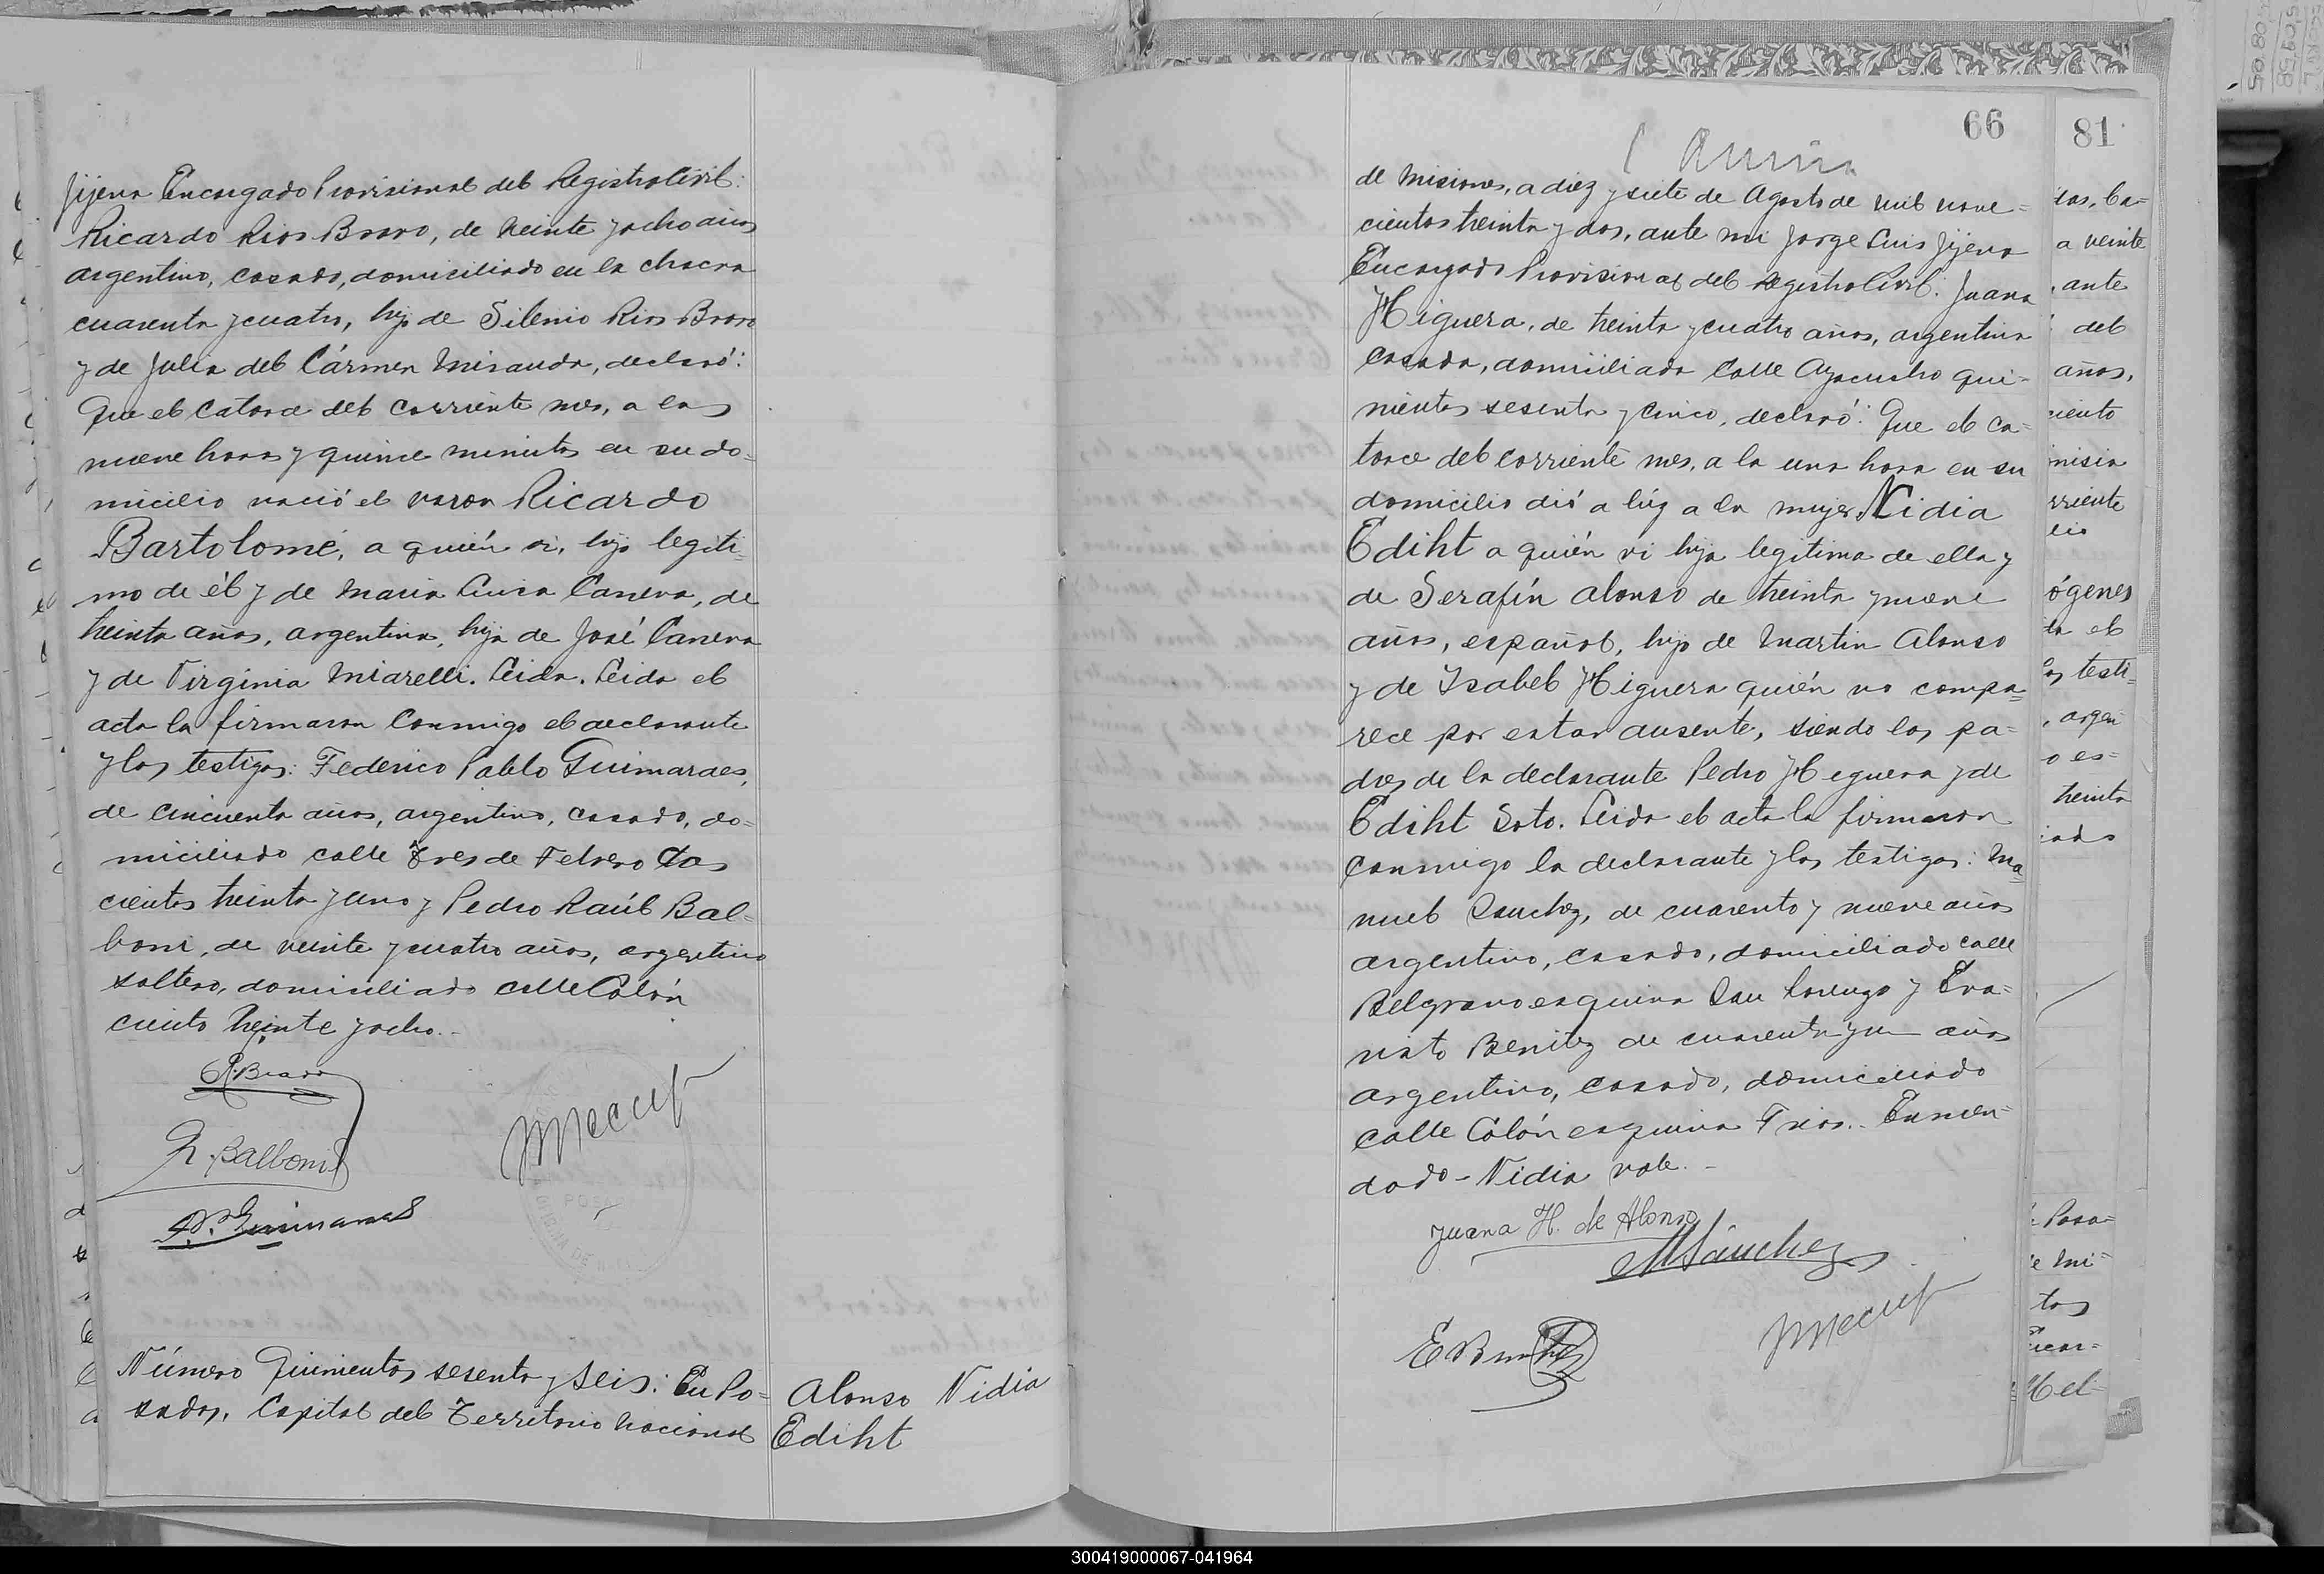 Jijena Encargado Provisional del Registro Civil:
Ricardo Rios Bravo, de treinte y ocho años
argentino, casado, domiciliado en la chacra
cuarenta y cuatro, hijo de Silenio Rios Bravo
y de Julia del Cármen Miranda, declaró:
Que el catorce del corriente mes, a las
nueve horas y quince minutos en su do=
micilio nació el varon Ricardo
Bartolomé, a quién vi, hijo legiti=
mo de él y de Maria Luisa Canera, de
treinta años, argentina, hija de José Canera
y de Virginia Miarelli. Leida. Leida el
acta la firmaron conmigo el declarante
y los testigos: Federico Pablo Guimaraes,
de cincuenta años, argentino, casado, do=
miciliado calle Tres de Febrero dos
cientos treinta y uno y Pedro Raúl Bal=
boni, de veinte y cuatro años, argentino
soltero, domiciliado calle Colón
ciento treinte y ocho.-
R. Bravo
R. Balboni
F. P. Guimaraes
Número Quinientos sesenta y seis: En Po=
sadas, Capital del Territorio Nacional
Alonso Nidia
Ediht
66
de Misiones, a diez y siete de Agosto de mil nove=
cientos treinta y dos, ante mi Jorge Luis Jijena
Encargado Provisional del Registro Civil: Juana
Higuera, de treinta y cuatro años, argentina
casada, domiciliada calle Ayacucho qui=
nientos sesenta y cinco, declaró: Que el ca=
torce del corriente mes, a la una hora en su
domicilio dió a lúz a la mujer Nidia
Ediht a quién vi hija legitima de ella y
de Serafín Alonso de treinta y nueve
años, español, hijo de Martin Alonso
y de Isabel Higuera quién no compa=
rece por estar ausente, siendo los pa=
dres de la declarante Pedro Higuera y de
Ediht Soto. Leida el acta la firmaron
conmigo la declarante y los testigos: Ma=
nuel Sanchez, de cuarenta y nueve años
argentino, casado, domiciliado calle
Belgrano esquina San Lorenzo y Eva=
risto Benitez de cuarenta y un años
argentino, casado, domiciliado
calle Colón esquina Frias.. Enmen=
dado - Nidia vale.-
Juana H. de Alonso
M Sánchez
E Benitez
81
a veinte
ante
del
años,
ciento
rriente
ógenes
el
testi=
, argen
o es=
treinta
Posa=
Mi=
tos
300419000067-041964